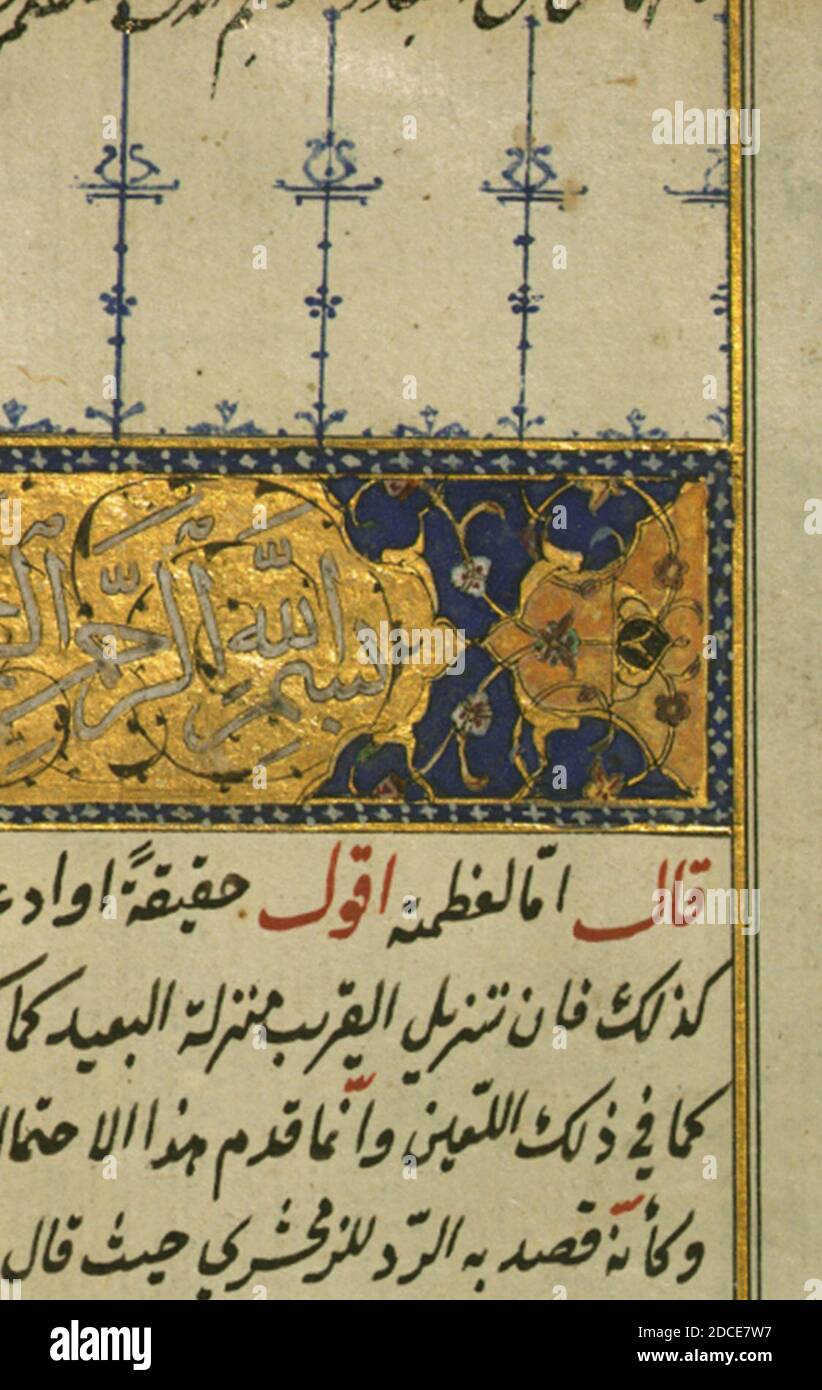 بسم الله الرحمن
قال امّا لعظمته اقول حقيقةً او اد
كذلك فان تنزيل القريب منزلة البعيد كما
كما في ذلك اللّعين وانّما قدم هذا الاحتمال
وكأنّه قصد به الردّ للزمخشري حيث قال
alamy
Image ID: 2DCE7W7
www.alamy.com